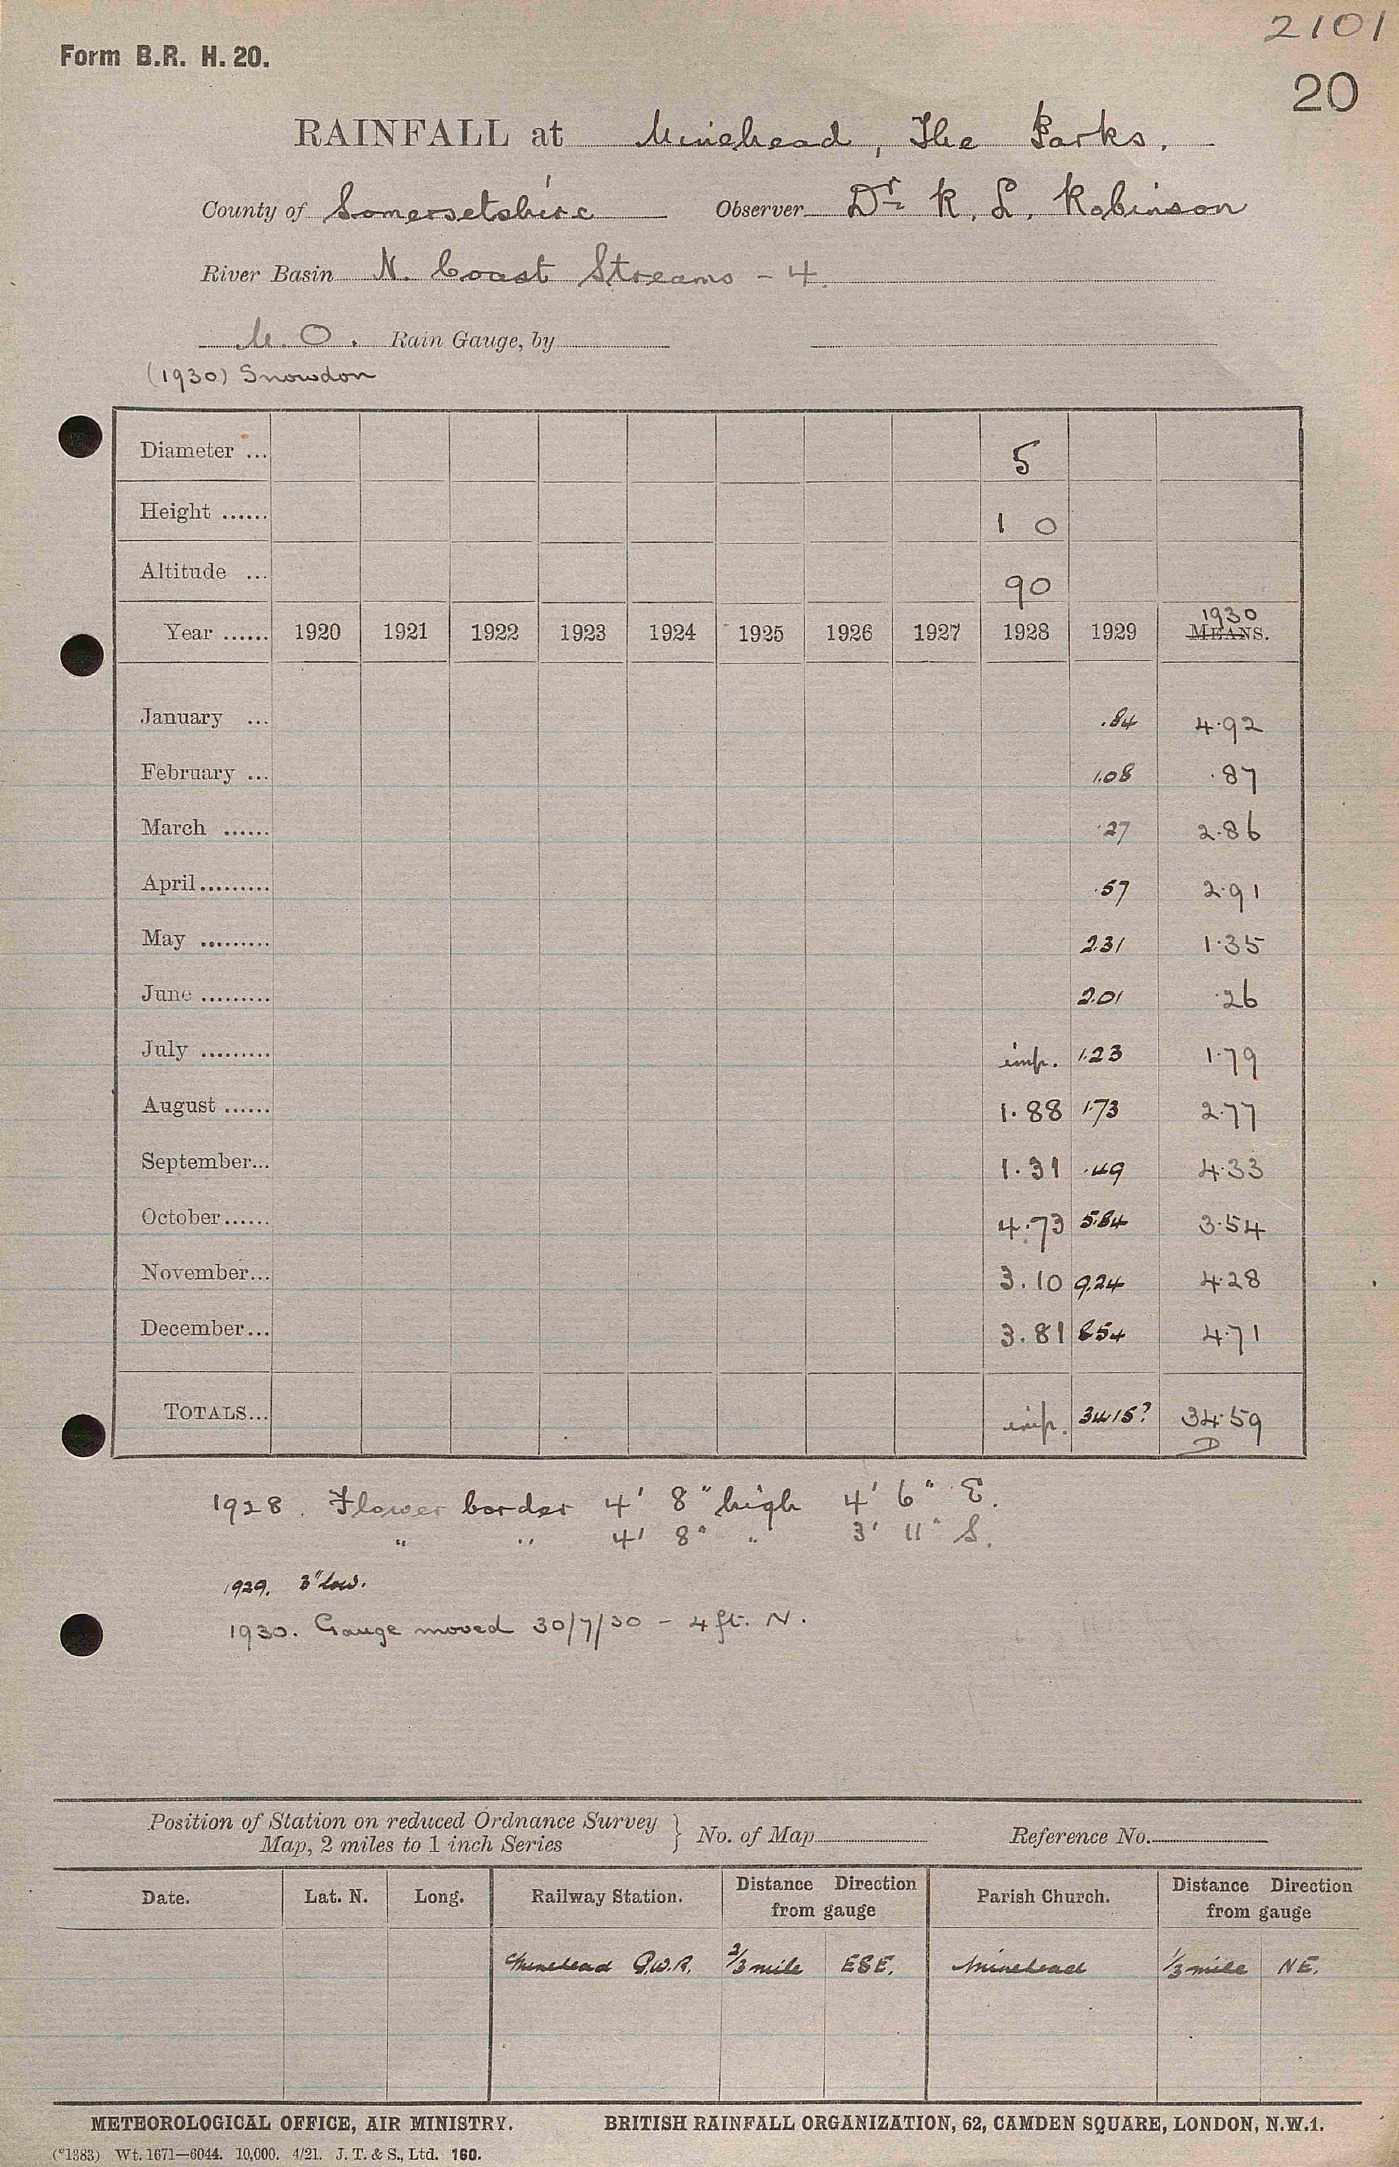 2101
Form B.R. H. 20.
20
RAINFALL at Minehead, The Parks.
County of Somersetshire Observer Dr. K. L. Robinson
River Basin N. Coast Streams - 4.
M.O. Rain Gauge, by
(1930) Snowdon
Diameter ... 5
Height ...... 1 0
Altitude ... 90
1930
Year ...... 1920 1921 1922 1923 1924 1925 1926 1927 1928 1929 MEANS.
January ... .84 4.92
February ... 1.08 .87
March ...... .27 2.86
April ......... .57 2.91
May ......... 2.31 1.35
June ......... 2.01 .26
July ......... imp. 1.23 1.79
August ...... 1.88 1.73 2.77
September... 1.31 .49 4.33
October...... 4.73 5.84 3.54
November... 3.10 9.24 4.28
December... 3.81 8.54 4.71
TOTALS... imp. 34.15? 34.59
D
1928. Flower border 4' 8" high 4' 6" E.
" " 4' 8" " 3' 11" S.
1929. 3" low.
1930. Gauge moved 30/7/30 - 4 ft. N.
Position of Station on reduced Ordnance Survey
Map, 2 miles to 1 inch Series } No. of Map Reference No.
Date. Lat. N. Long. Railway Station. Distance Direction from gauge Parish Church. Distance Direction from gauge
Minehead G.W.R. 2/3 mile ESE. Minehead 1/3 mile NE.
METEOROLOGICAL OFFICE, AIR MINISTRY. BRITISH RAINFALL ORGANIZATION, 62, CAMDEN SQUARE, LONDON, N.W.1.
(*1383) Wt. 1671—6044. 10,000. 4/21. J. T. & S., Ltd. 160.